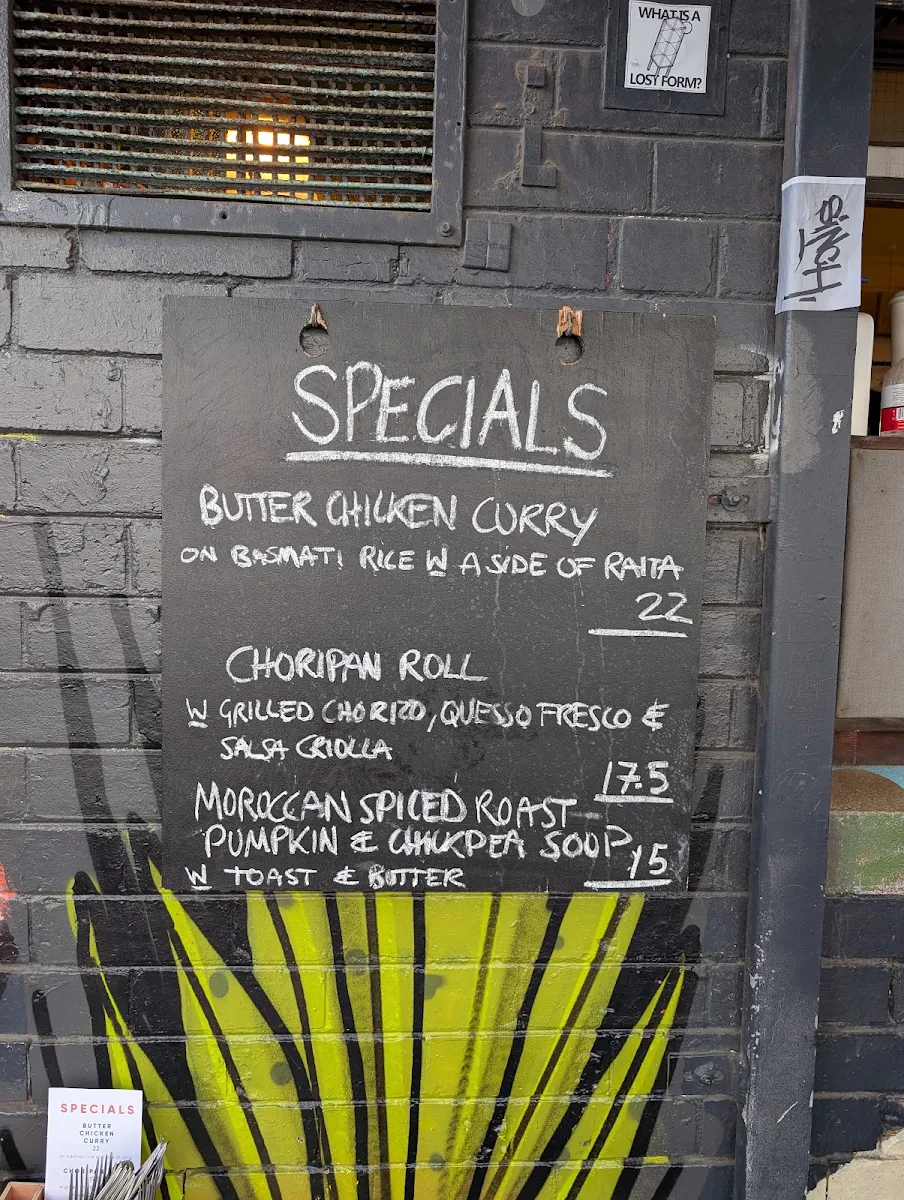 WHAT IS A
LOST FORM?
SPECIALS
BUTTER CHICKEN CURRY
ON BASMATI RICE W A SIDE OF RAITA
22
CHORIPAN ROLL
W GRILLED CHORIZO, QUESSO FRESCO &
SALSA CRIOLLA
17.5
MOROCCAN SPICED ROAST
PUMPKIN & CHICKPEA SOUP
15
W TOAST & BUTTER
SPECIALS
BUTTER
CHICKEN
CURRY
22